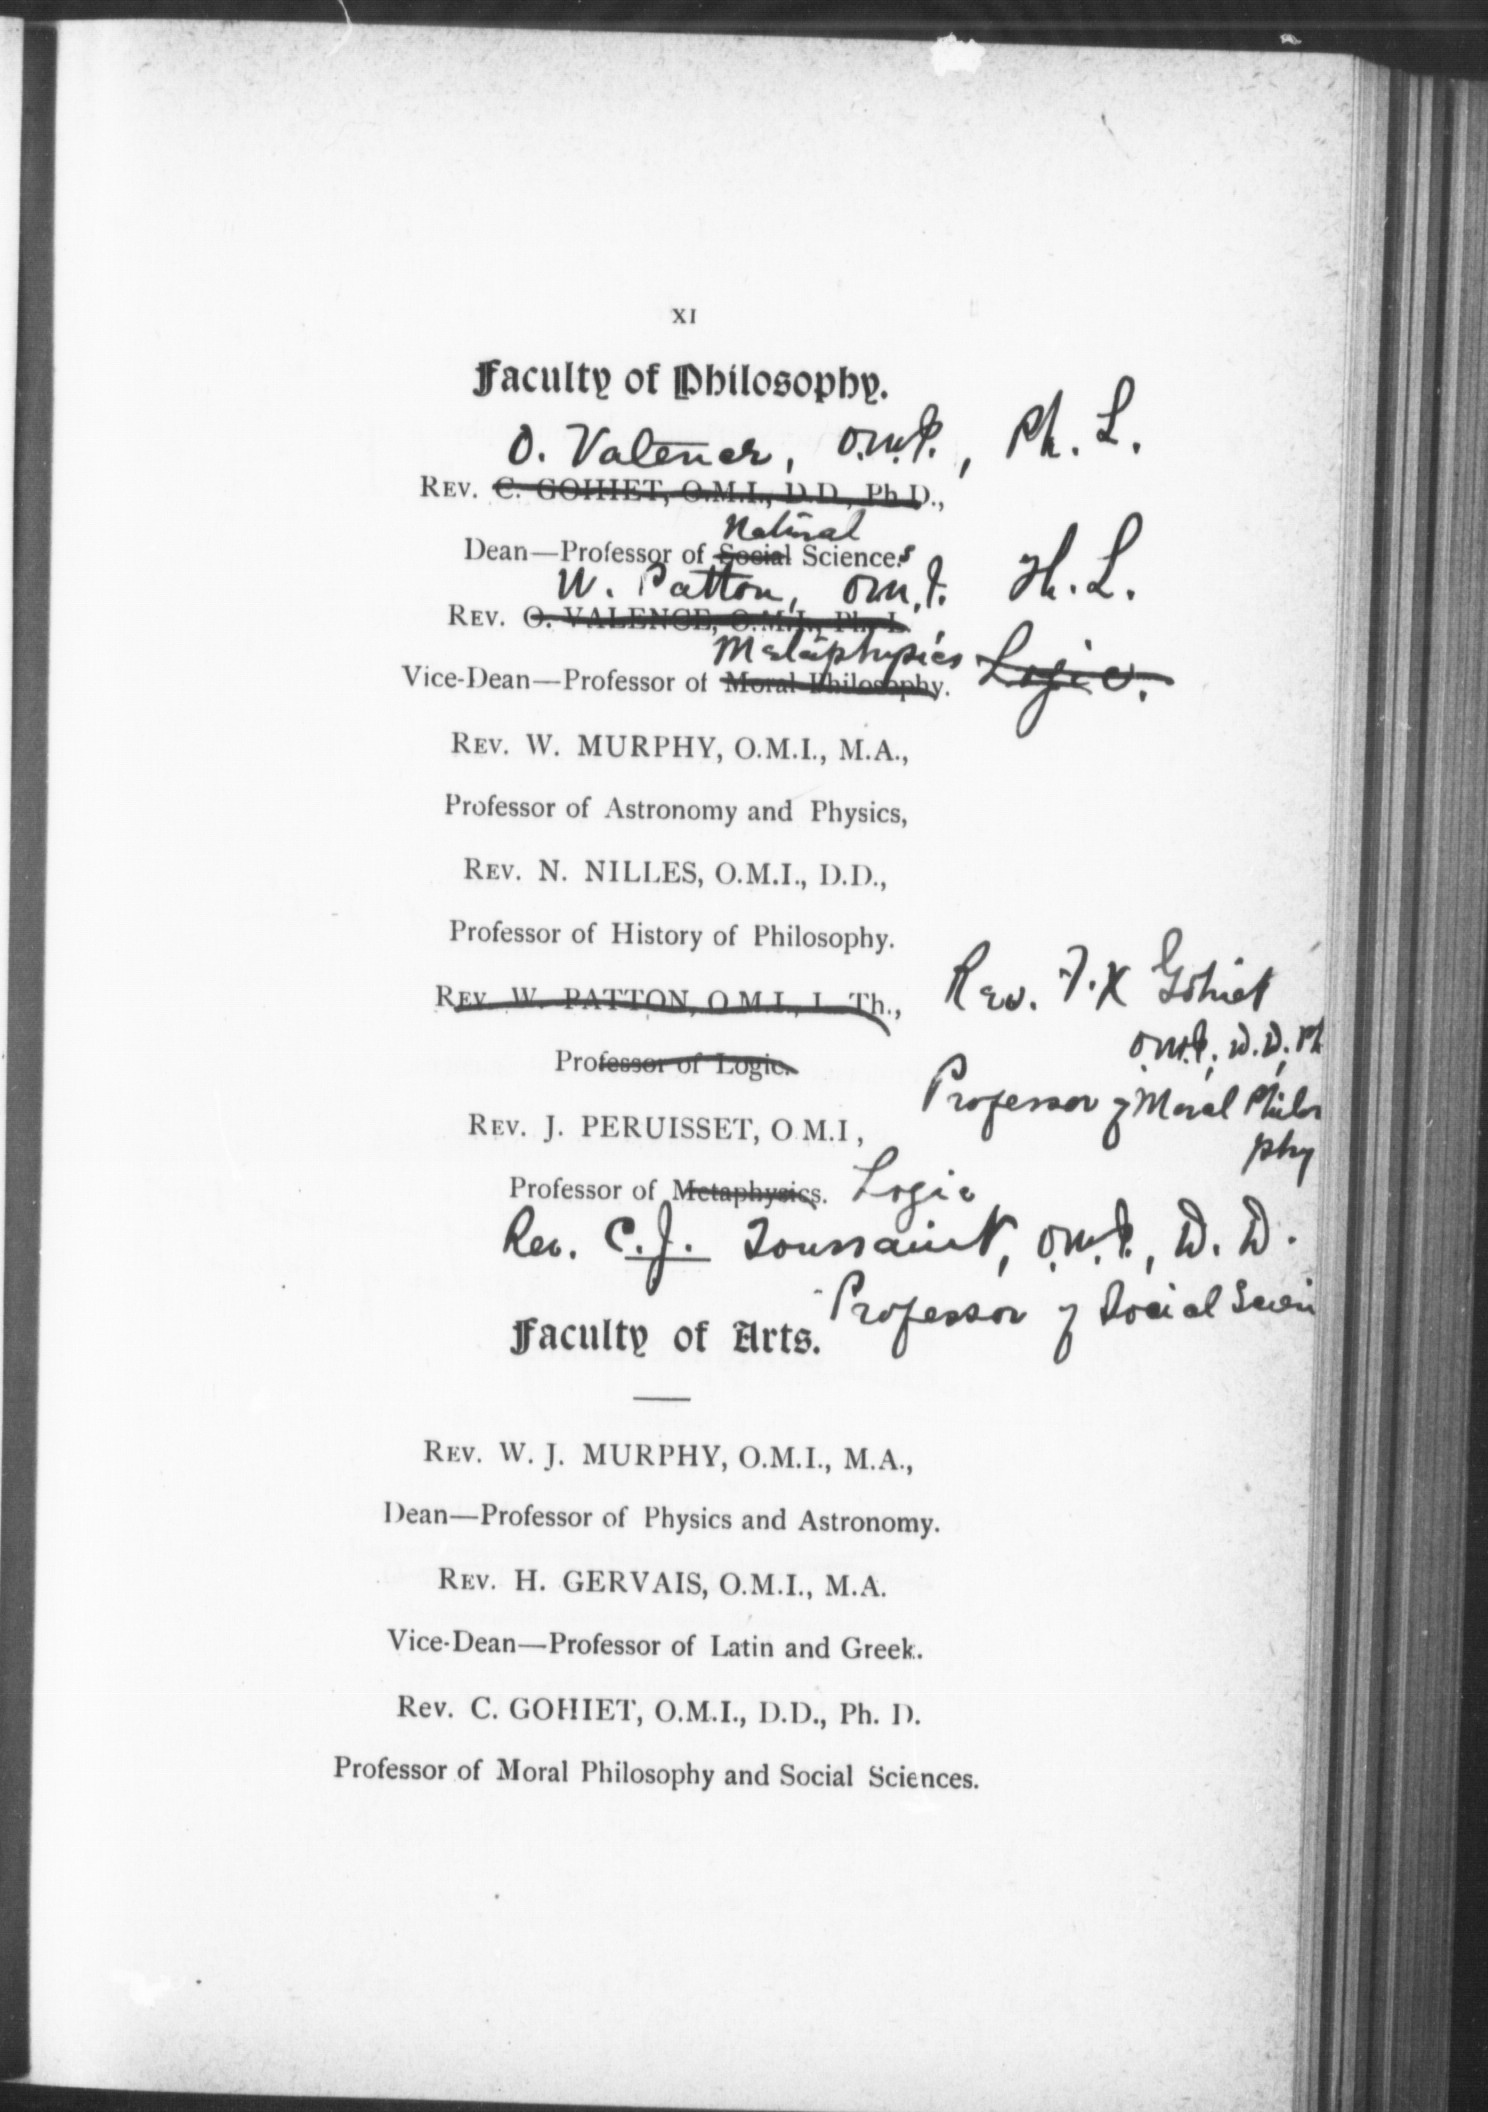 XI
Faculty of Philosophy.
O. Valence, O.M.I., Ph. L.
REV. C. GOHIET, O.M.I., D.D., Ph.D.,
Natural
Dean—Professor of Social Sciences
W. Patton, O.M.I. Th. L.
REV. O. VALENCE, O.M.I., Ph. L.
Metaphysics Logic.
Vice-Dean—Professor of Moral Philosophy.
REV. W. MURPHY, O.M.I., M.A.,
Professor of Astronomy and Physics,
REV. N. NILLES, O.M.I., D.D.,
Professor of History of Philosophy.
REV. W. PATTON, O.M.I., L. Th., Rev. F. X Gohiet
O.M.I., D.D., Ph
Professor of Logic.
Professor of Moral Philos
phy
REV. J. PERUISSET, O M.I,
Professor of Metaphysics. Logic
Rev. C. J. Toussaint, O.M.I., D. D.
Professor of Social Scien
Faculty of Arts.
REV. W. J. MURPHY, O.M.I., M.A.,
Dean—Professor of Physics and Astronomy.
REV. H. GERVAIS, O.M.I., M.A.
Vice-Dean—Professor of Latin and Greek.
Rev. C. GOHIET, O.M.I., D.D., Ph. D.
Professor of Moral Philosophy and Social Sciences.